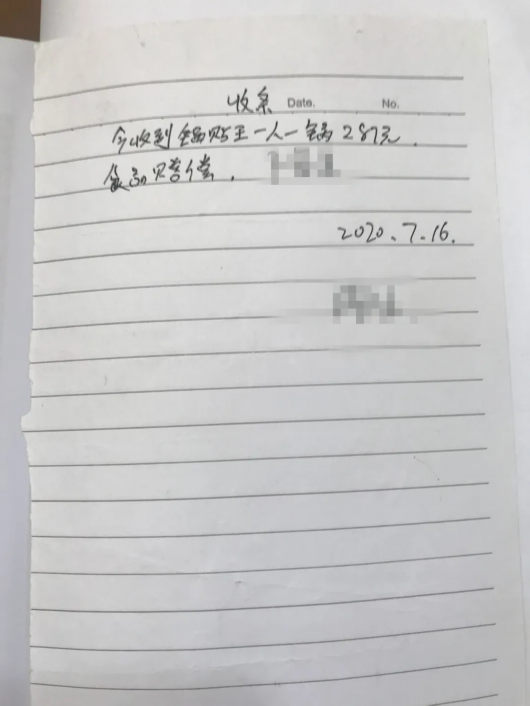 收条 Date. No.
今收到锅贴王一人一锅287元.
食品赔偿.
2020.7.16.